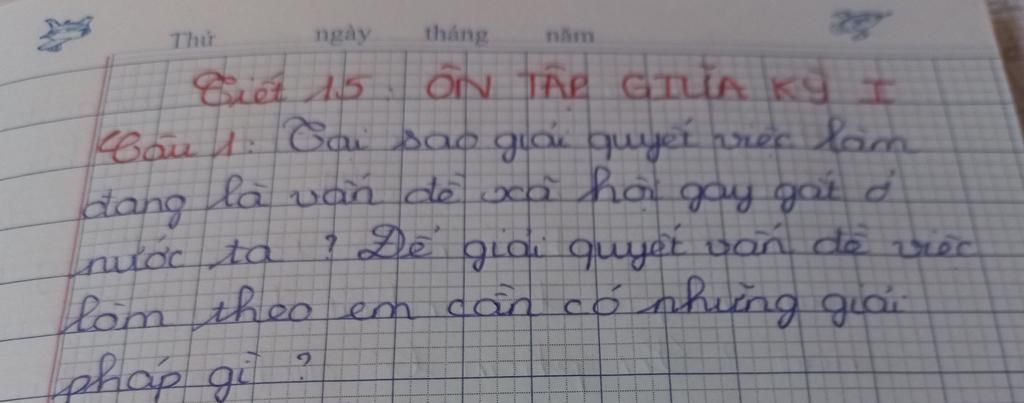 Thứ ngày tháng năm
Tiết 15. ÔN TẬP GIỮA KỲ I
Câu 1: Tại sao giải quyết việc làm
đang là vấn đề xã hội gay gắt ở
nước ta ? Để giải quyết vấn đề việc
làm theo em cần có những giải
pháp gì ?